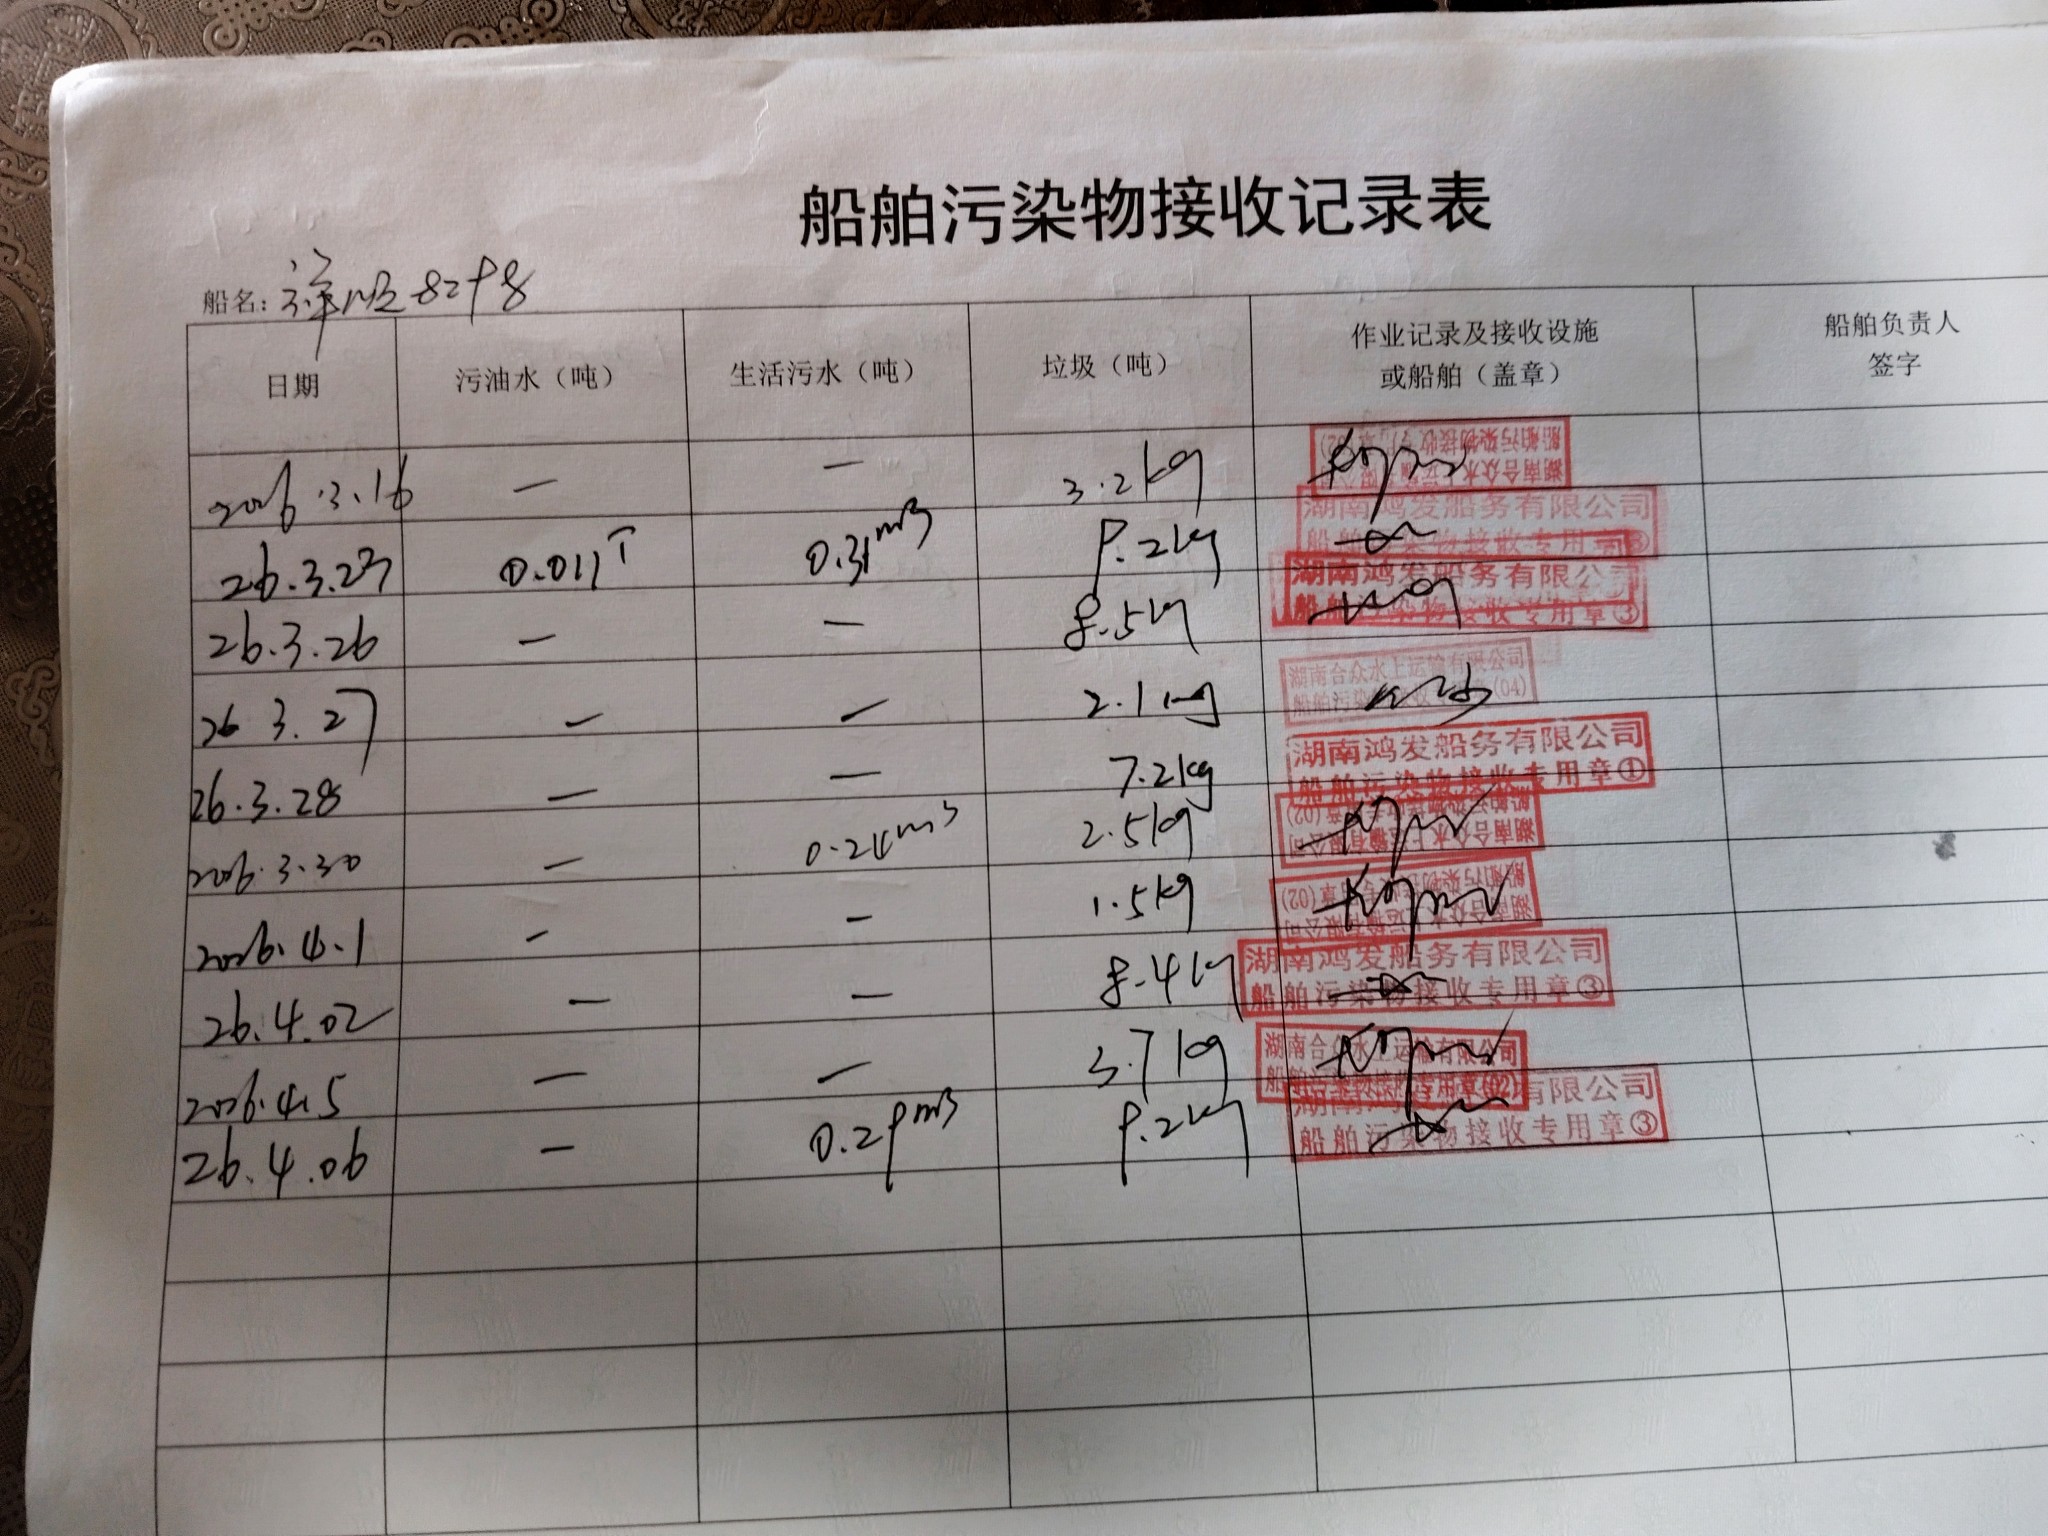 船舶污染物接收记录表
船名：祥顺8298
日期 污油水（吨） 生活污水（吨） 垃圾（吨） 作业记录及接收设施或船舶（盖章） 船舶负责人签字
2026.3.16 — — 3.2kg 湖南合众水上运输有限公司 船舶污染物接收专用章(02)
26.3.23 0.011T 0.31m3 9.2kg 湖南鸿发船务有限公司 船舶污染物接收专用章③
26.3.26 — — 8.5kg 湖南鸿发船务有限公司 船舶污染物接收专用章③
26 3.27 — — 2.1kg 湖南合众水上运输有限公司 船舶污染物接收专用章(04)
26.3.28 — — 7.2kg 湖南鸿发船务有限公司 船舶污染物接收专用章①
2026.3.30 — 0.24m3 2.5kg 湖南合众水上运输有限公司 船舶污染物接收专用章(02)
2026.4.1 - — 1.5kg 湖南合众水上运输有限公司 船舶污染物接收专用章(02)
26.4.02 — — 8.4kg 湖南鸿发船务有限公司 船舶污染物接收专用章③
2026.4.5 — — 3.7kg 湖南合众水上运输有限公司 船舶污染物接收专用章(02)
26.4.06 — 0.29m3 9.2kg 湖南鸿发船务有限公司 船舶污染物接收专用章③